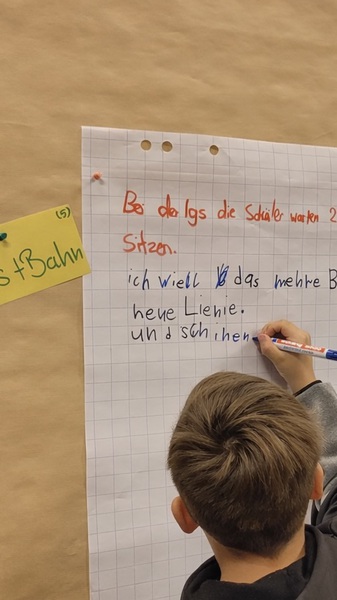 (5)
s+Bahn
Bei der Igs die Schüler warten 2
Sitzen.
ich wiell das mehre B
neue Lienie.
und schihen